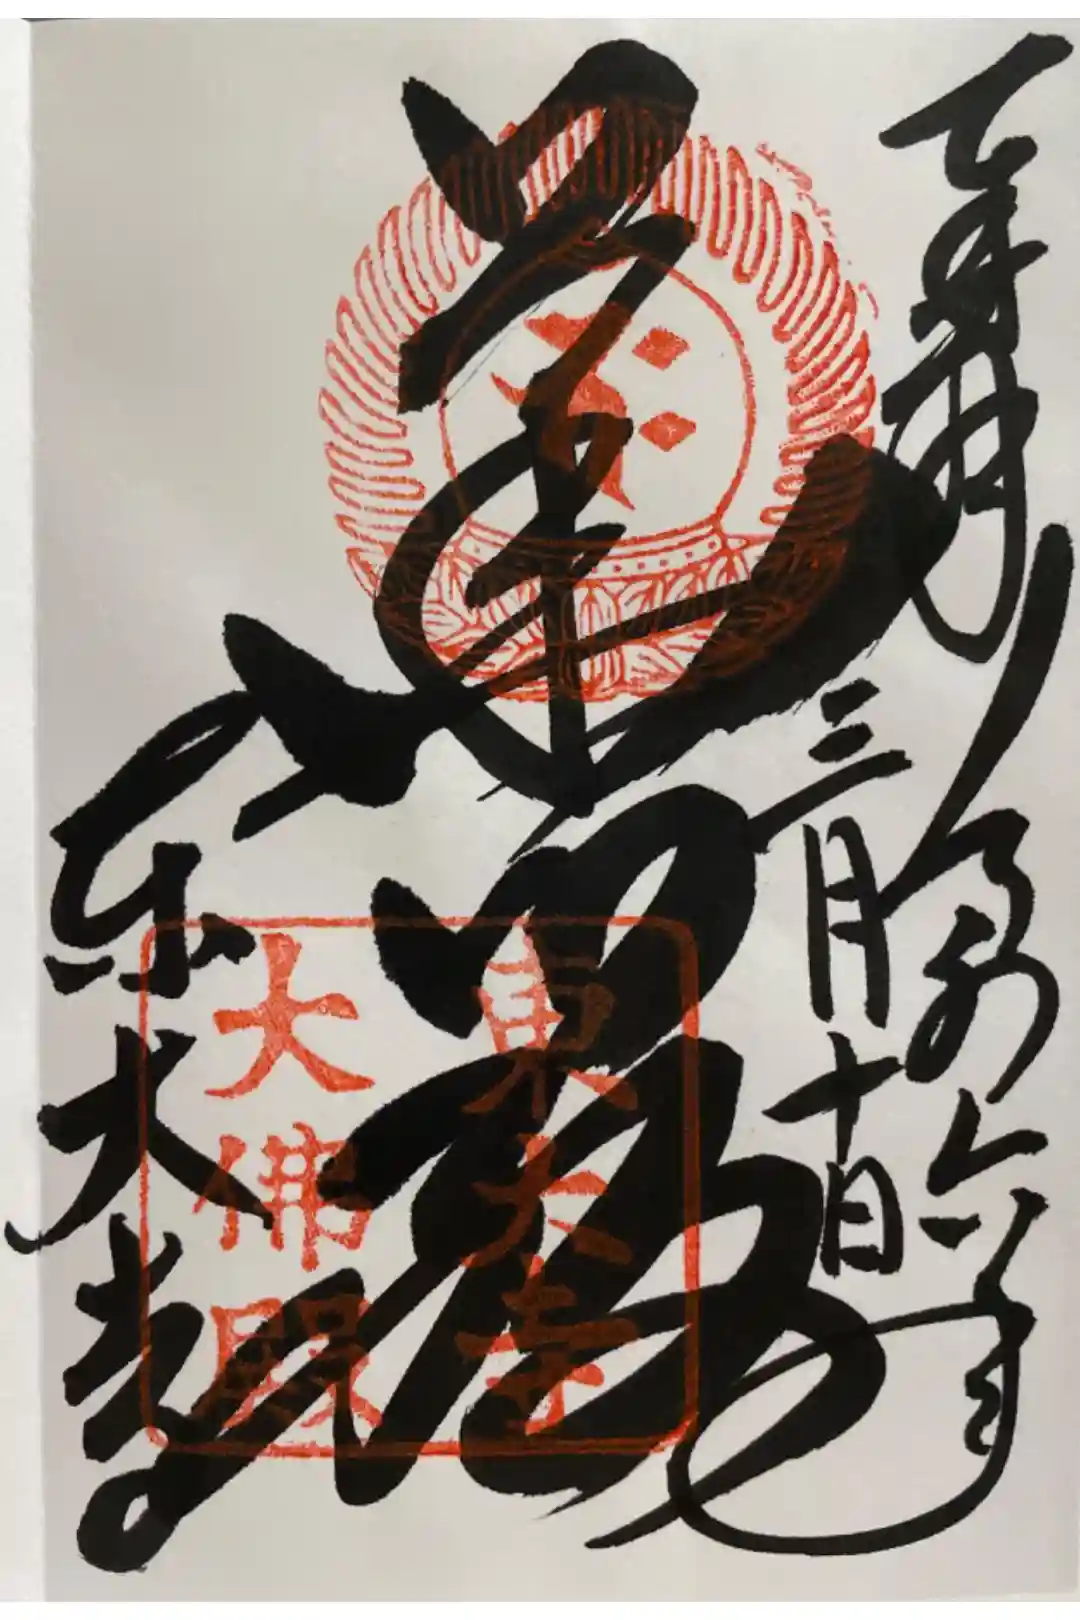 奉拝 令和六年
三月十日
華嚴
東大寺
東大寺
大佛殿